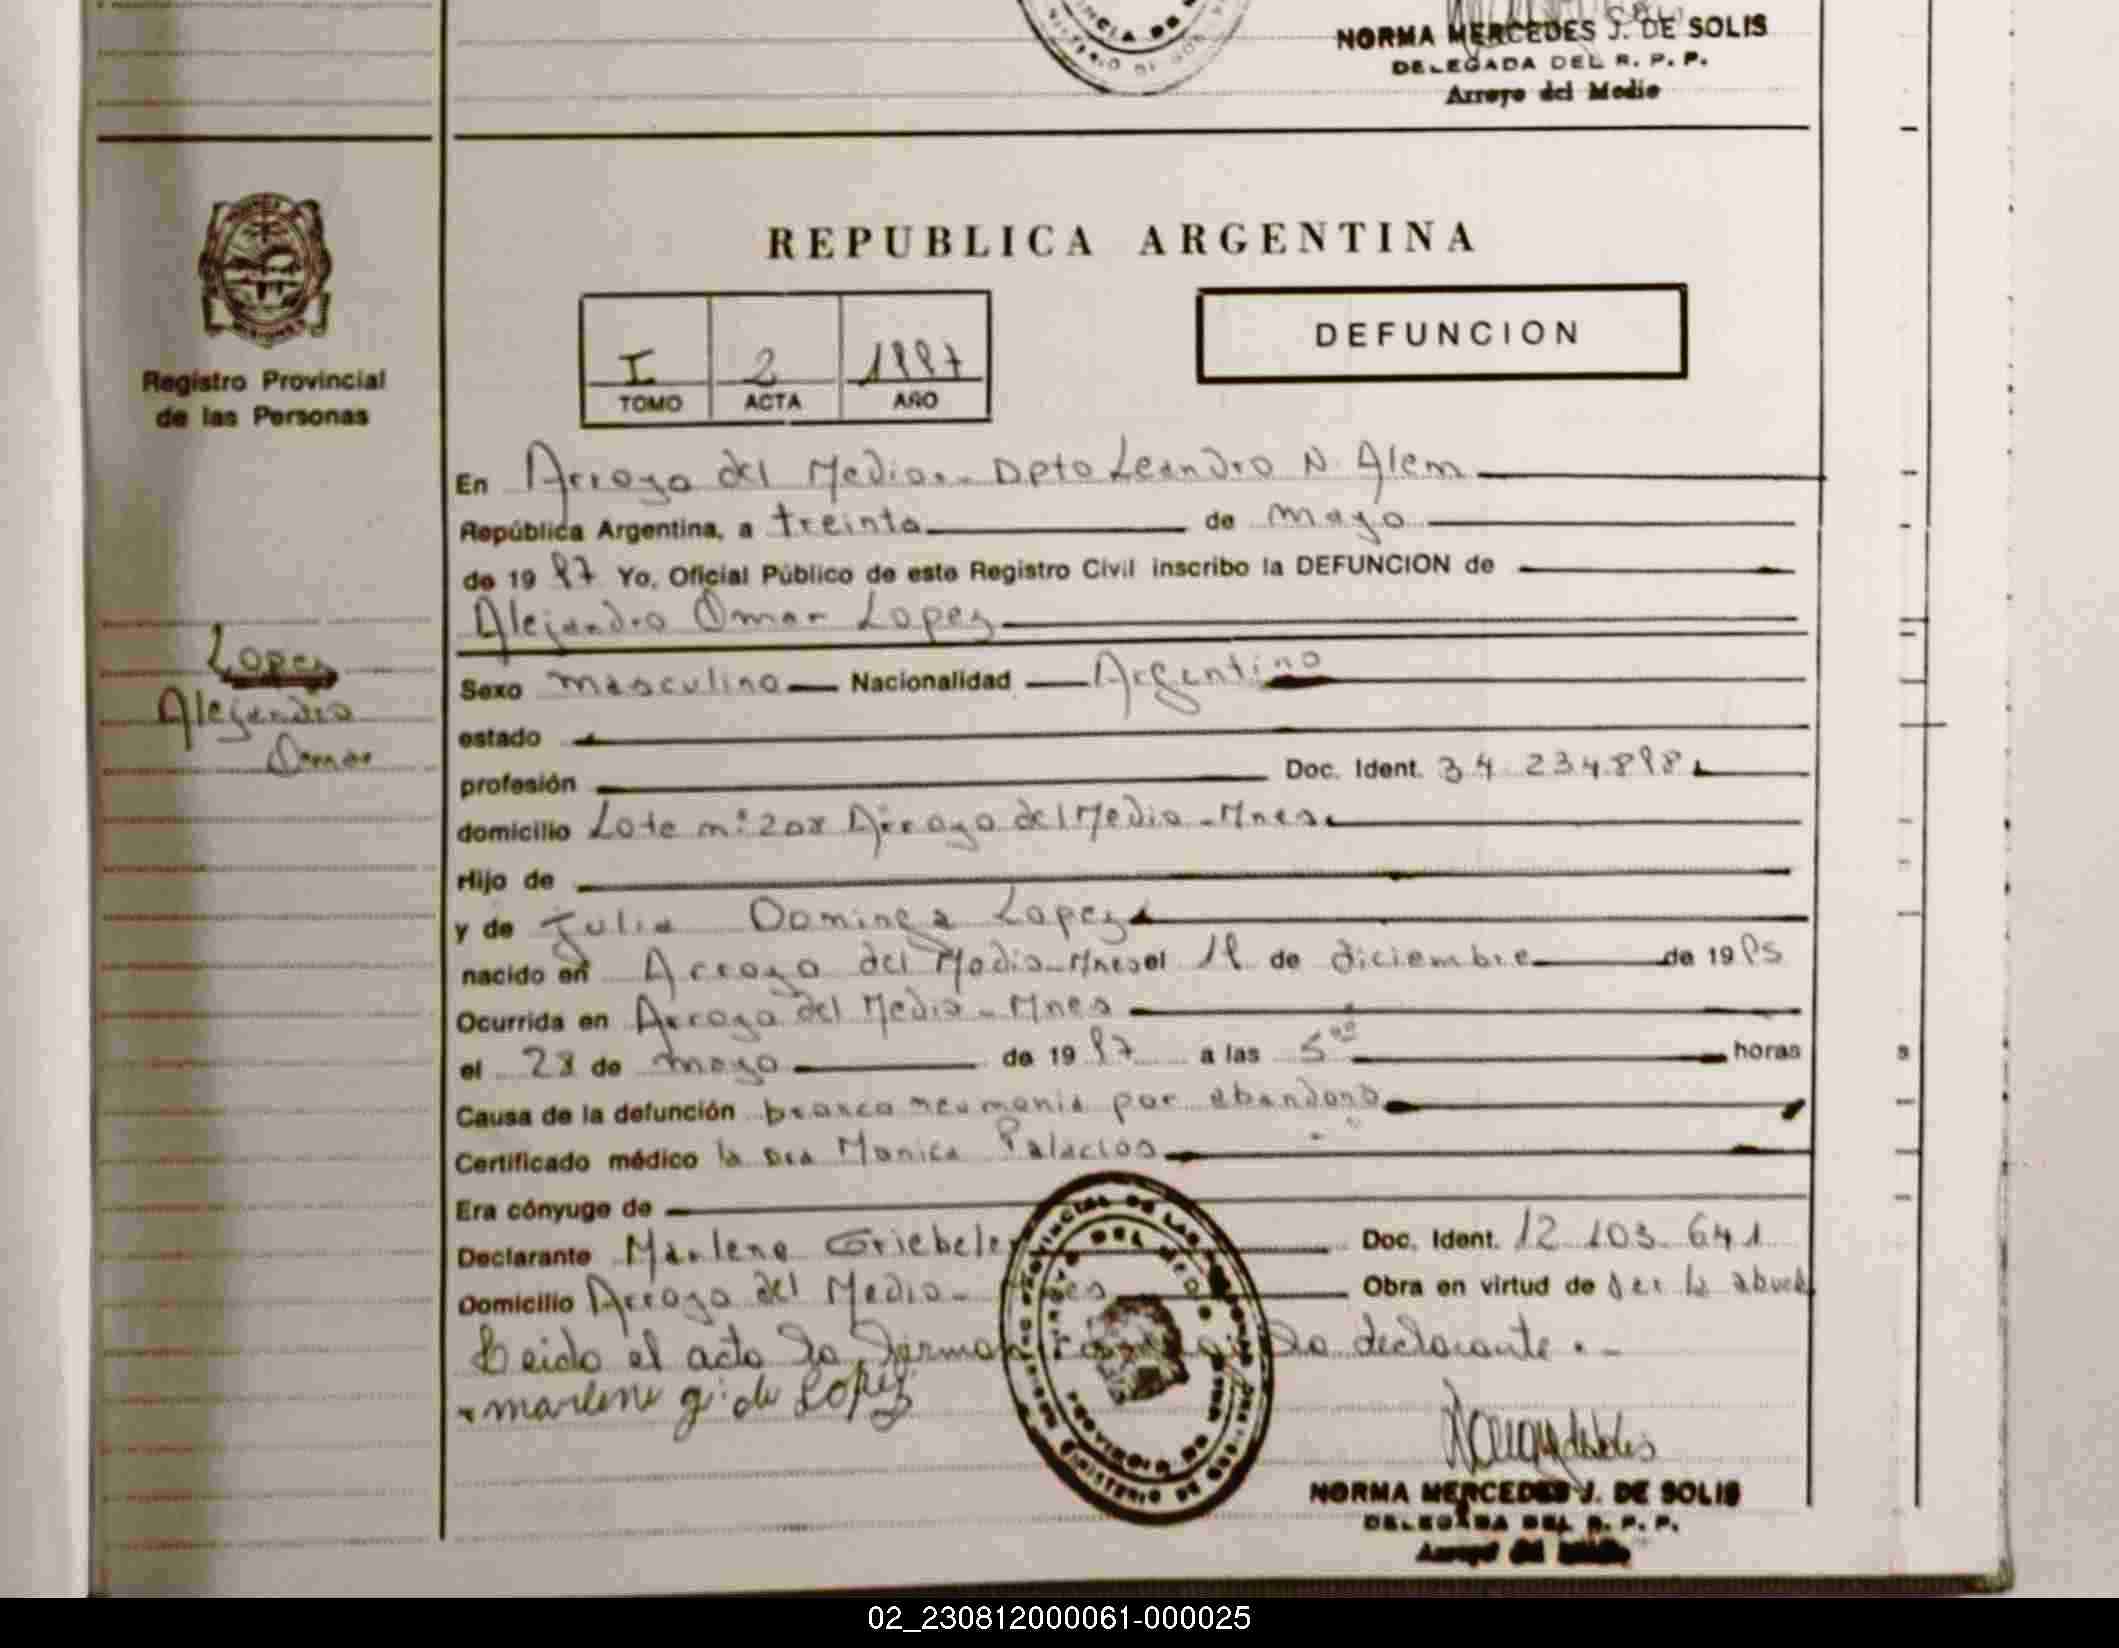 NORMA MERCEDES J. DE SOLIS
DELEGADA DEL R. P. P.
Arroyo del Medio
REPUBLICA ARGENTINA
DEFUNCION
I 2
TOMO ACTA AÑO
Registro Provincial
de las Personas
En Arroyo del Medio.- Dpto Leandro N. Alem
República Argentina, a treinta de mayo
de 19 Yo, Oficial Público de este Registro Civil inscribo la DEFUNCION de
Alejandro Omar Lopez
Lopez
Alejandro
Omar
Sexo masculino Nacionalidad Argentino
estado
profesión Doc. Ident.
domicilio Lote nº 208 Arroyo del Medio - Mnes
Hijo de
y de Julia Dominga Lopez
nacido en Arroyo del Medio - Mnes el de diciembre de 19
Ocurrida en Arroyo del Medio - Mnes
el 28 de mayo de 19 a las 5 horas
Causa de la defunción bronconeumonia por abandono
Certificado médico la Dra Monica Palacios
Era cónyuge de
Declarante Marlene Griebeler Doc. Ident. 12.103.641
Domicilio Arroyo del Medio - Mnes Obra en virtud de ser la abuela
Leido el acta la declarante.-
marlene g. de Lopez
NORMA MERCEDES J. DE SOLIS
DELEGADA DEL R. P. P.
Arroyo del Medio
02_230812000061-000025